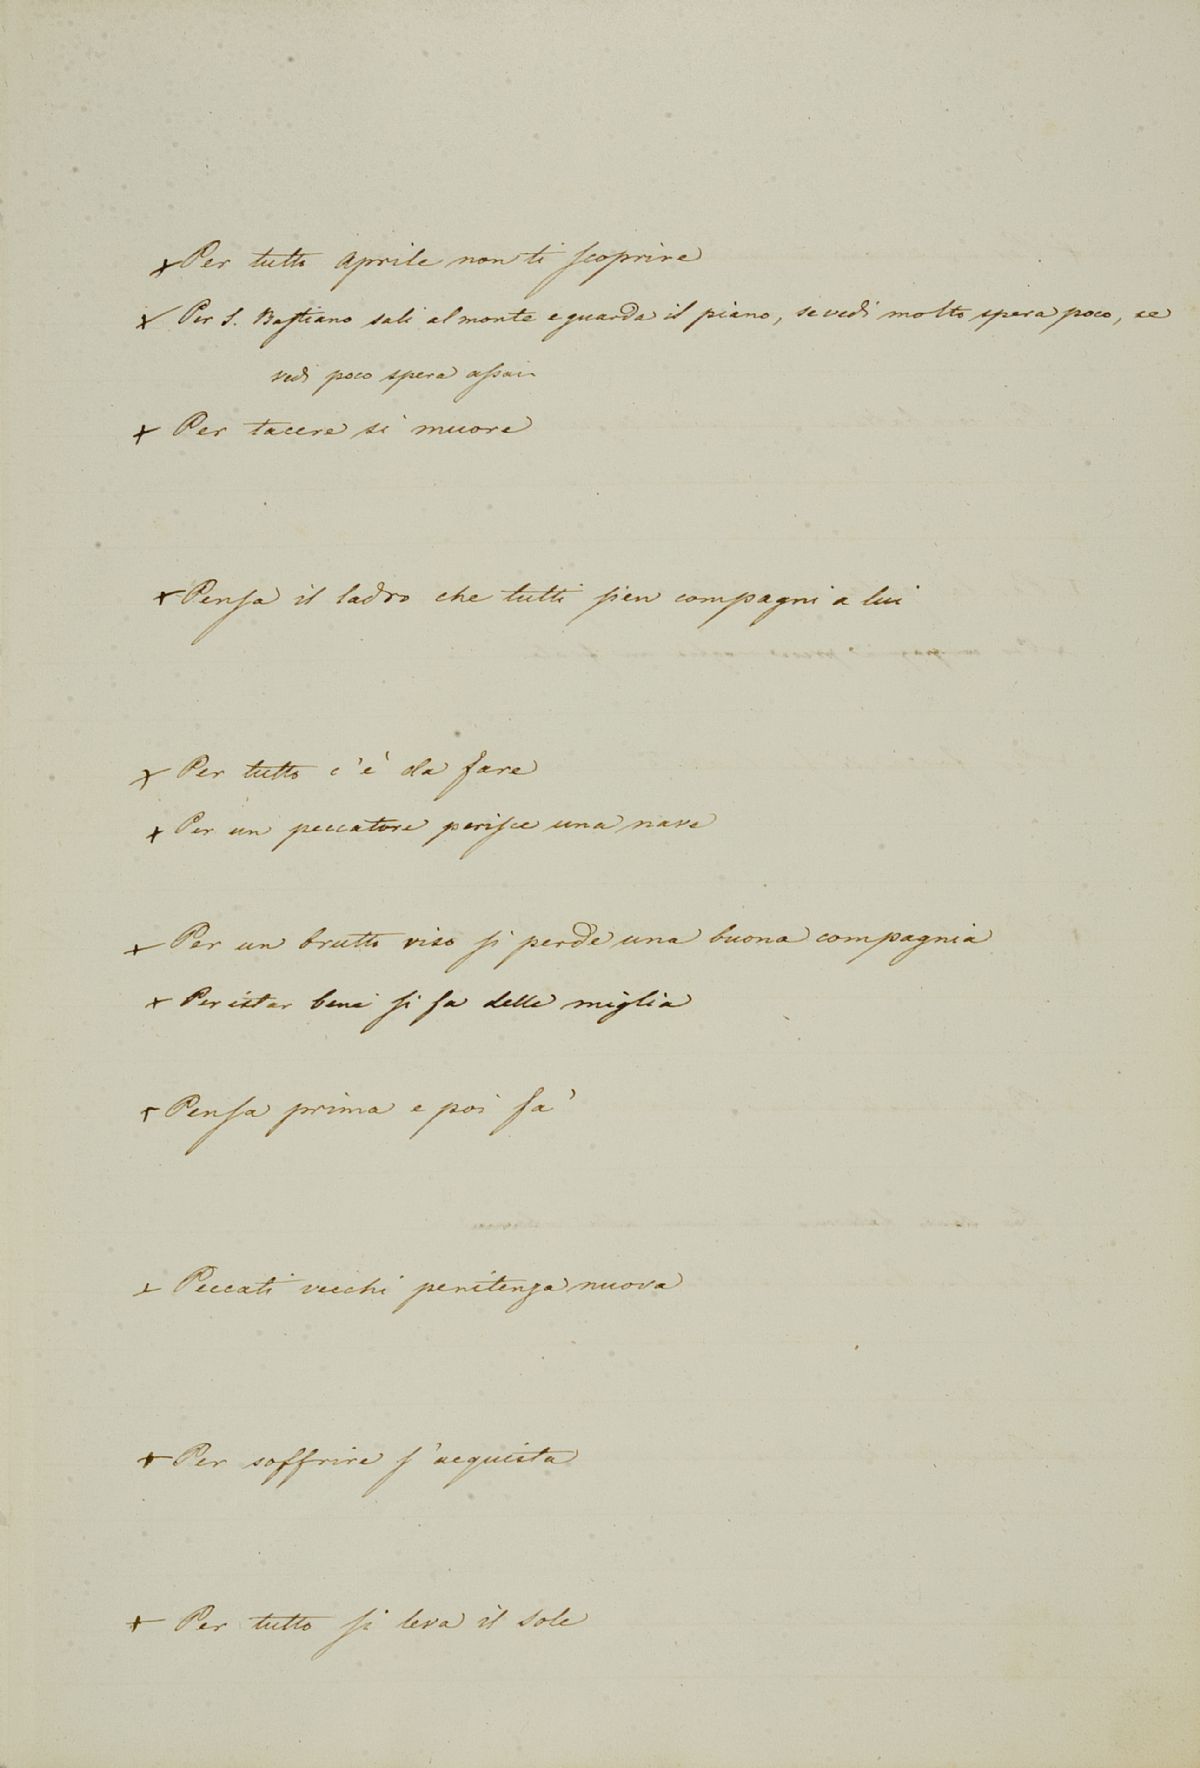 + Per tutto Aprile non ti scoprire
+ Per S. Bastiano sali al monte e guarda il piano, se vedi molto spera poco, se
vedi poco spera assai
+ Per tacere si muore
+ Pensa il ladro che tutti sien compagni a lui
+ Per tutto c'è da fare
+ Per un peccatore perisce una nave
+ Per un brutto viso si perde una buona compagnia
+ Per istar bene si fa delle miglia
+ Pensa prima e poi fa'
+ Peccati vecchi penitenza nuova
+ Per soffrire s'acquista
+ Per tutto si leva il sole